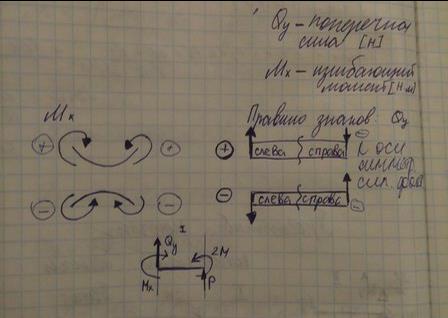 Qy – поперечная
сила [Н]
Mx – изгибающий
момент [Нм]
Mx
Правило знаков Qy
+
+
+
слева
справа
–
к оси
–
–
–
слева
справа
–
I
Qy
2M
Mx
P